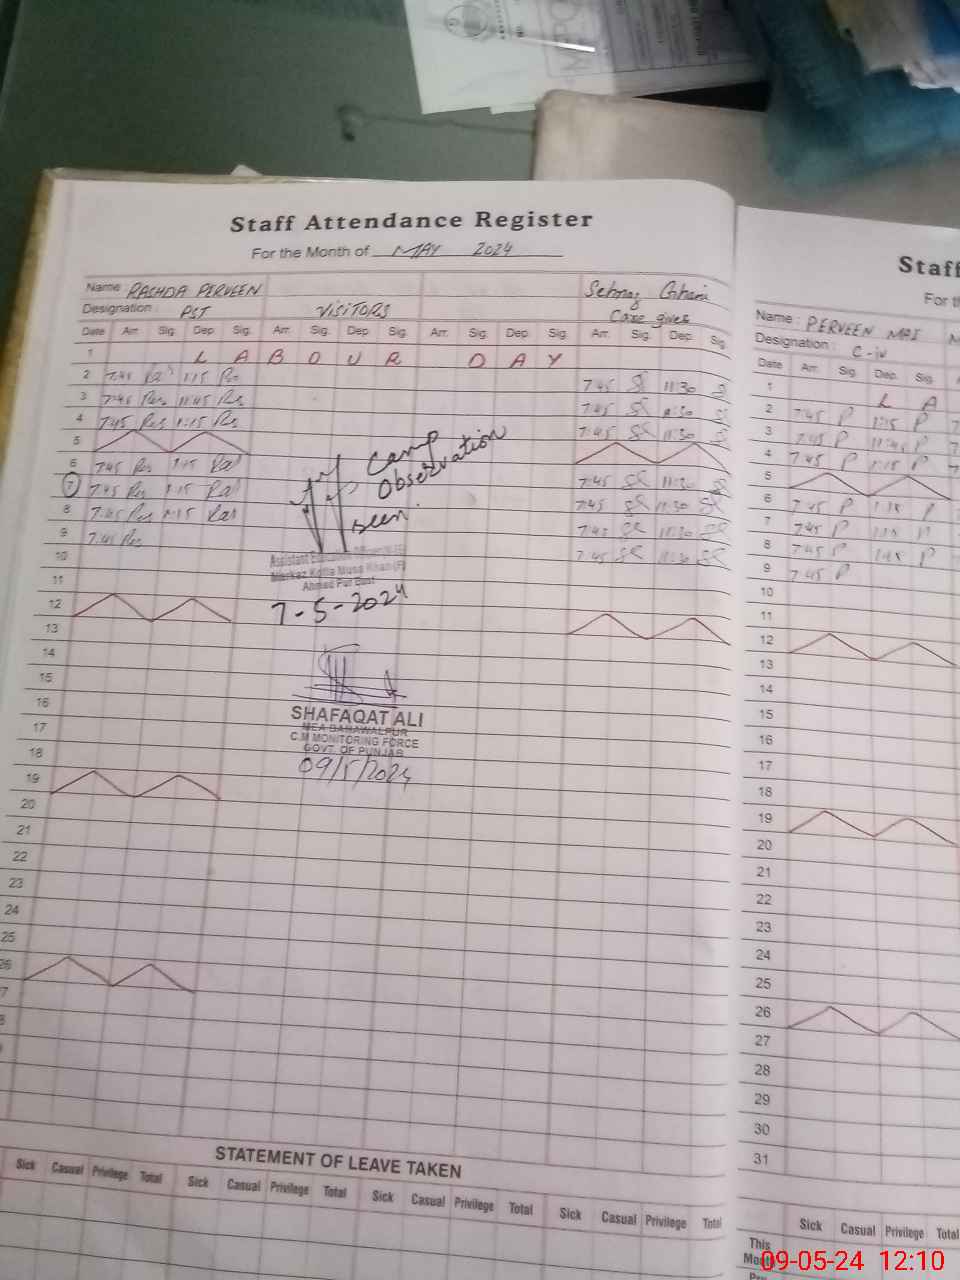 Staff Attendance Register
For the Month of MAY 2024
Name RASHDA PERVEEN
Designation : PST VISITORS Care giver
Date Arr. Sig. Dep. Sig. Arr. Sig. Dep. Sig. Arr. Sig. Dep. Sig. Arr. Sig. Dep. Sig
1 L A B O U R D A Y
2 7:45 1:15 7:45 SR 11:30 S
3 7:45 Res 11:45 Rs 7:45 SR 11:30
4 7:45 Res 1:15 Rs 7:45 SR 11:30
5
6 7:45 Res 1:15 Ras
7 7:45 Res 1:15 Ras 7:45 SR 11:30
8 7:45 Res 1:15 Ras 7:45 SR 11:30 SR
9 7:45 Res 7:45 SR 11:30 SR
7:45 SR 11:30 SR
10
11
12
13
14
15
16
17
18
19
20
21
22
23
24
25
26
Camp
Observation
Seen.
Markaz Kotla Musa Khan (F)
Ahmed Pur East
7-5-2024
SHAFAQAT ALI
MEA BAHAWALPUR
C.M MONITORING FORCE
GOVT. OF PUNJAB
09/5/2024
STATEMENT OF LEAVE TAKEN
Sick Casual Privilege Total Sick Casual Privilege Total Sick Casual Privilege Total Sick Casual Privilege Total
Staff
For th
Name : PERVEEN MAI
Designation : C-iv
Date Arr. Sig. Dep. Sig.
1 L A
2 7:45 P 1:15 P
3 7:45 P 11:45 P
4 7:45 P 1:15 P
5
6 7:45 P 1:15 P
7 7:45 P 1:15 P
8 7:45 P 1:15 P
9 7:45 P
10
11
12
13
14
15
16
17
18
19
20
21
22
23
24
25
26
27
28
29
30
31
Sick Casual Privilege Total
This
Month
09-05-24 12:10